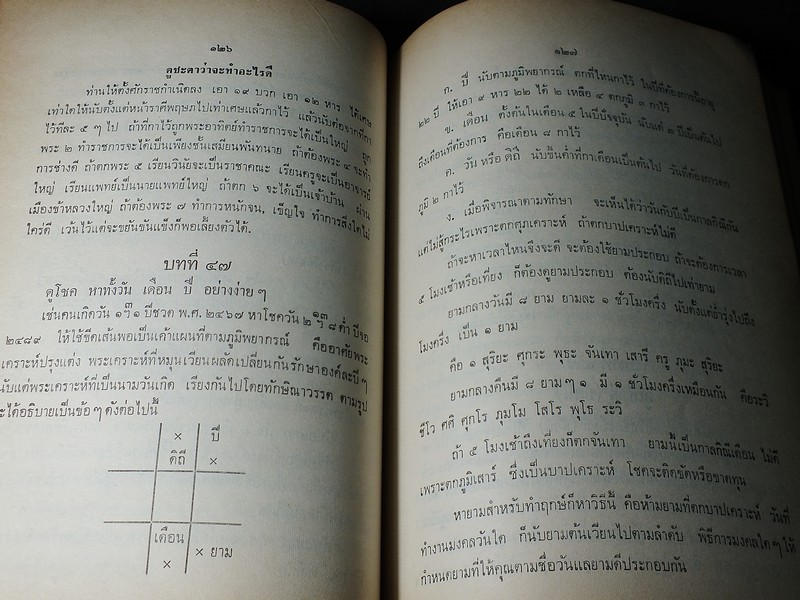 ๑๒๖
ดูชะตาว่าจะทำอะไรดี
ท่านให้ตั้งศักราชกำเนิดลง เอา ๑๙ บวก เอา ๑๒ หาร ได้เศษ
เท่าใดให้นับตั้งแต่หน้าราศีพฤษภไปเท่าเศษแล้วกาไว้ แล้วนับต่อจากที่กา
ไว้ทีละ ๕ ๆ ไป ถ้าที่กาไว้ถูกพระอาทิตย์ทำราชการจะได้เป็นใหญ่ ถูก
พระ ๒ ทำราชการจะได้เป็นเพียงชั้นเสมียนพันทนาย ถ้าต้องพระ ๔ จะทำ
การช่างดี ถ้าตกพระ ๕ เรียนวินัยจะเป็นราชาคณะ เรียนครูจะเป็นอาจารย์
ใหญ่ เรียนแพทย์เป็นนายแพทย์ใหญ่ ถ้าตก ๖ จะได้เป็นเจ้าบ้าน ผ่าน
เมืองข้าหลวงใหญ่ ถ้าต้องพระ ๗ ทำการหนักจน, เข็ญใจ ทำการสิ่งใดไม่
ใคร่ดี เว้นไว้แต่จะขยันขันแข็งก็พอเลี้ยงตัวได้.
บทที่ ๔๗
ดูโชค หาทั้งวัน เดือน ปี อย่างง่ายๆ
เช่นคนเกิดวัน ปีชวด พ.ศ. ๒๔๖๗ หาโชควัน ค่ำ ปีจอ
๒๔๘๙ ให้ใช้ขีดเส้นพอเป็นเค้าแผนที่ตามภูมิพยากรณ์ คืออาศัยพระ
เคราะห์ปรุงแต่ง พระเคราะห์ที่หมุนเวียนผลัดเปลี่ยนกันรักษาองค์ละปี ๆ
นับแต่พระเคราะห์ที่เป็นนามวันเกิด เรียงกันไปโดยทักษิณาวรรต ตามรูป
ะได้อธิบายเป็นข้อๆ ดังต่อไปนี้
× ปี
ดิถี ×
เดือน
× × ยาม
๑๒๗
ก. ปี นับตามภูมิพยากรณ์ ตกที่ไหนกาไว้ ในปีที่ต้องการนี้อายุ
๒๒ ปี ให้เอา ๙ หาร ๒๒ ได้ ๒ เหลือ ๔ ตกภูมิ ๓ กาไว้
ข. เดือน ตั้งต้นในเดือน ๕ ในปีปัจจุบัน นับแต่ ๓ ปีเป็นต้นไป
ถึงเดือนที่ต้องการ คือเดือน ๘ กาไว้
ค. วัน หรือ ดิถี นับขึ้นค่ำที่กาเดือนเป็นต้นไป วันที่ต้องการตก
ภูมิ ๒ กาไว้
ง. เมื่อพิจารณาตามทักษา จะเห็นได้ว่าวันกับปีเป็นกาลกิณีกัน
แต่ไม่สู้กระไรเพราะตกศุภเคราะห์ ถ้าตกบาปเคราะห์ไม่ดี
ถ้าจะหาเวลาไหนจึงจะดี จะต้องใช้ยามประกอบ ถ้าจะต้องการเวลา
๕ โมงเช้าหรือเที่ยง ก็ต้องดูยามประกอบ ต้องนับดิถีไปเท่ายาม
ยามกลางวันมี ๘ ยาม ยามละ ๑ ชั่วโมงครึ่ง นับตั้งแต่ย่ำรุ่งไปถึง
โมงครึ่ง เป็น ๑ ยาม
คือ ๑ สุริยะ ศุกระ พุธะ จันเทา เสารี ครู ภุมะ สุริยะ
ยามกลางคืนมี ๘ ยามๆ ๑ มี ๑ ชั่วโมงครึ่งเหมือนกัน คือระวิ
ชีโว ศศิ ศุกโร ภุมโม โสโร พุโธ ระวิ
ถ้า ๕ โมงเช้าถึงเที่ยงก็ตกจันเทา ยามนี้เป็นกาลกิณีเดือน ไม่ดี
เพราะตกภูมิเสาร์ ซึ่งเป็นบาปเคราะห์ โชคจะติดขัดหรือขาดทุน
หายามสำหรับทำฤกษ์ก็หาวิธีนี้ คือห้ามยามที่ตกบาปเคราะห์ วันที่
ทำงานมงคลวันใด ก็นับยามต้นเวียนไปตามลำดับ พิธีการมงคลใดๆ ให้
กำหนดยามที่ให้คุณตามชื่อวันแลยามดีประกอบกัน